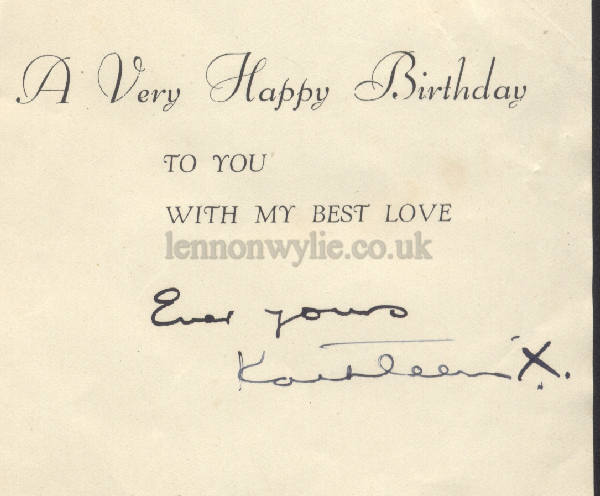 A Very Happy Birthday
TO YOU
WITH MY BEST LOVE
lennonwylie.co.uk
Ever yours
Kathleen X.